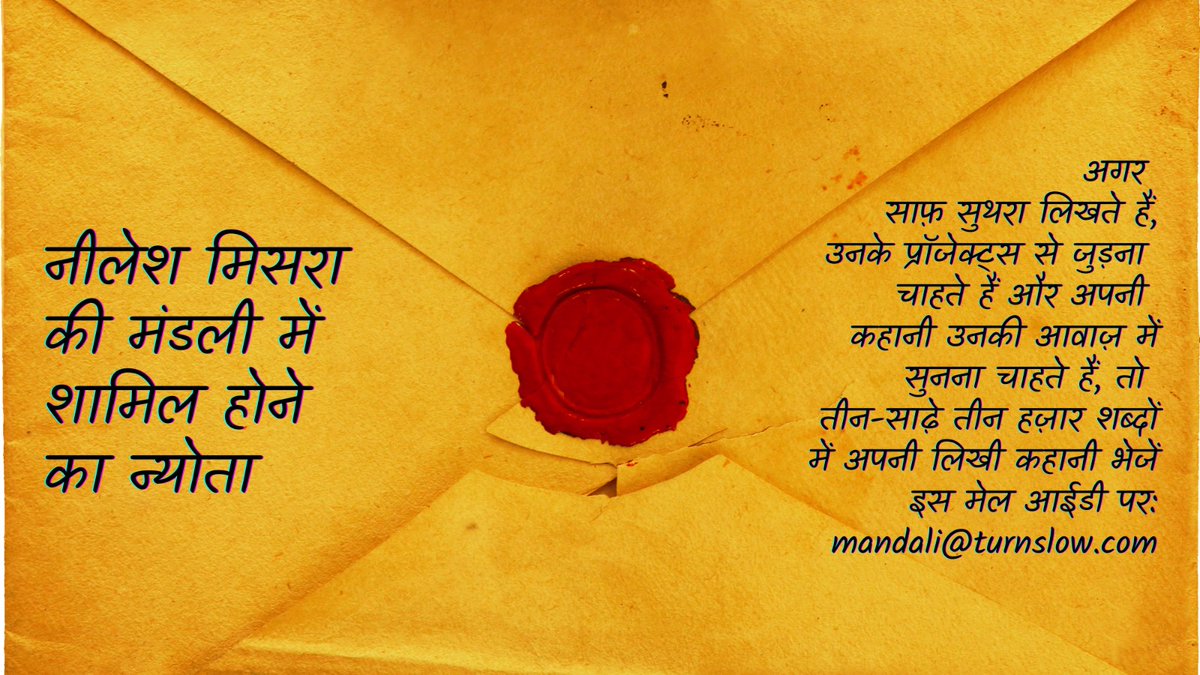 नीलेश मिसरा
की मंडली में
शामिल होने
का न्योता
अगर
साफ़ सुथरा लिखते हैं,
उनके प्रॉजेक्ट्स से जुड़ना
चाहते हैं और अपनी
कहानी उनकी आवाज़ में
सुनना चाहते हैं, तो
तीन-साढ़े तीन हज़ार शब्दों
में अपनी लिखी कहानी भेजें
इस मेल आईडी पर:
mandali@turnslow.com